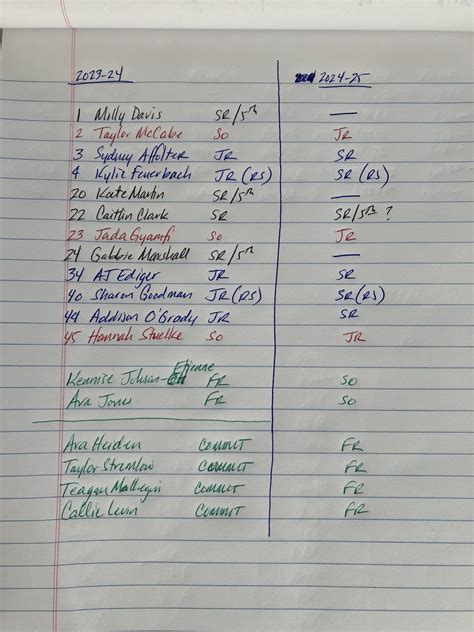 2023-24 2024-25
1 Molly Davis SR/5th —
2 Taylor McCabe SO JR
3 Sydney Affolter JR SR
4 Kylie Feuerbach JR (RS) SR (RS)
20 Kate Martin SR/5th —
22 Caitlin Clark SR SR/5th ?
23 Jada Gyamfi SO JR
24 Gabbie Marshall SR/5th —
34 AJ Ediger JR SR
40 Sharon Goodman JR (RS) SR (RS)
44 Addison O'Grady JR SR
45 Hannah Stuelke SO JR
Kennise Johnson-Etienne FR SO
Ava Jones FR SO
Ava Heiden COMMIT FR
Taylor Stremlow COMMIT FR
Teagan Mallegni COMMIT FR
Callie Levin COMMIT FR